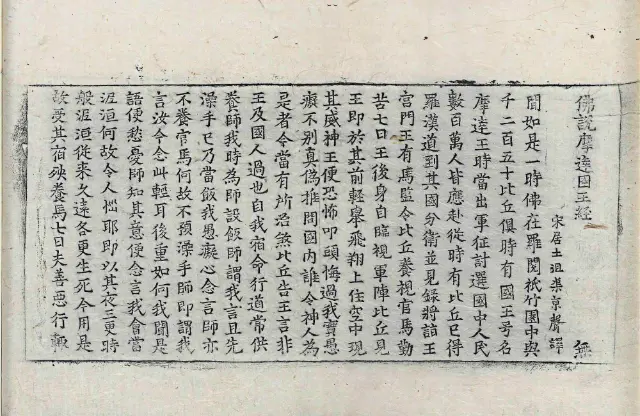 佛說摩達國王經　無
宋居士沮渠京聲譯
聞如是一時佛在羅閱祇竹園中與
千二百五十比丘俱時有國王号名
摩達王時當出軍征討選國中人民
數百萬人皆應赴從時有比丘已得
羅漢道到其國分衛並見録將詣王
宮門王有馬監令比丘養視官馬勤
苦七日王後身自臨視軍陣比丘見
王即於其前輕舉飛翔上住空中現
其威神王便恐怖叩頭悔過我實愚
癡不别真偽推問國内誰令神人為
是者今當有所治煞比丘告王言非
王及國人過也自我宿命行道常供
養師我時為師設飯師謂我言且先
澡手已乃當飯我愚癡心念言師亦
不養官馬何故不預澡手師即謂我
言汝今念此輕耳後重如何我聞是
語便愁憂師知其意便念言我會當
泥洹何故令人惱耶即以其夜三更時
般泥洹從来久遠各更生死今用是
故受其宿殃養馬七日夫善惡行輒